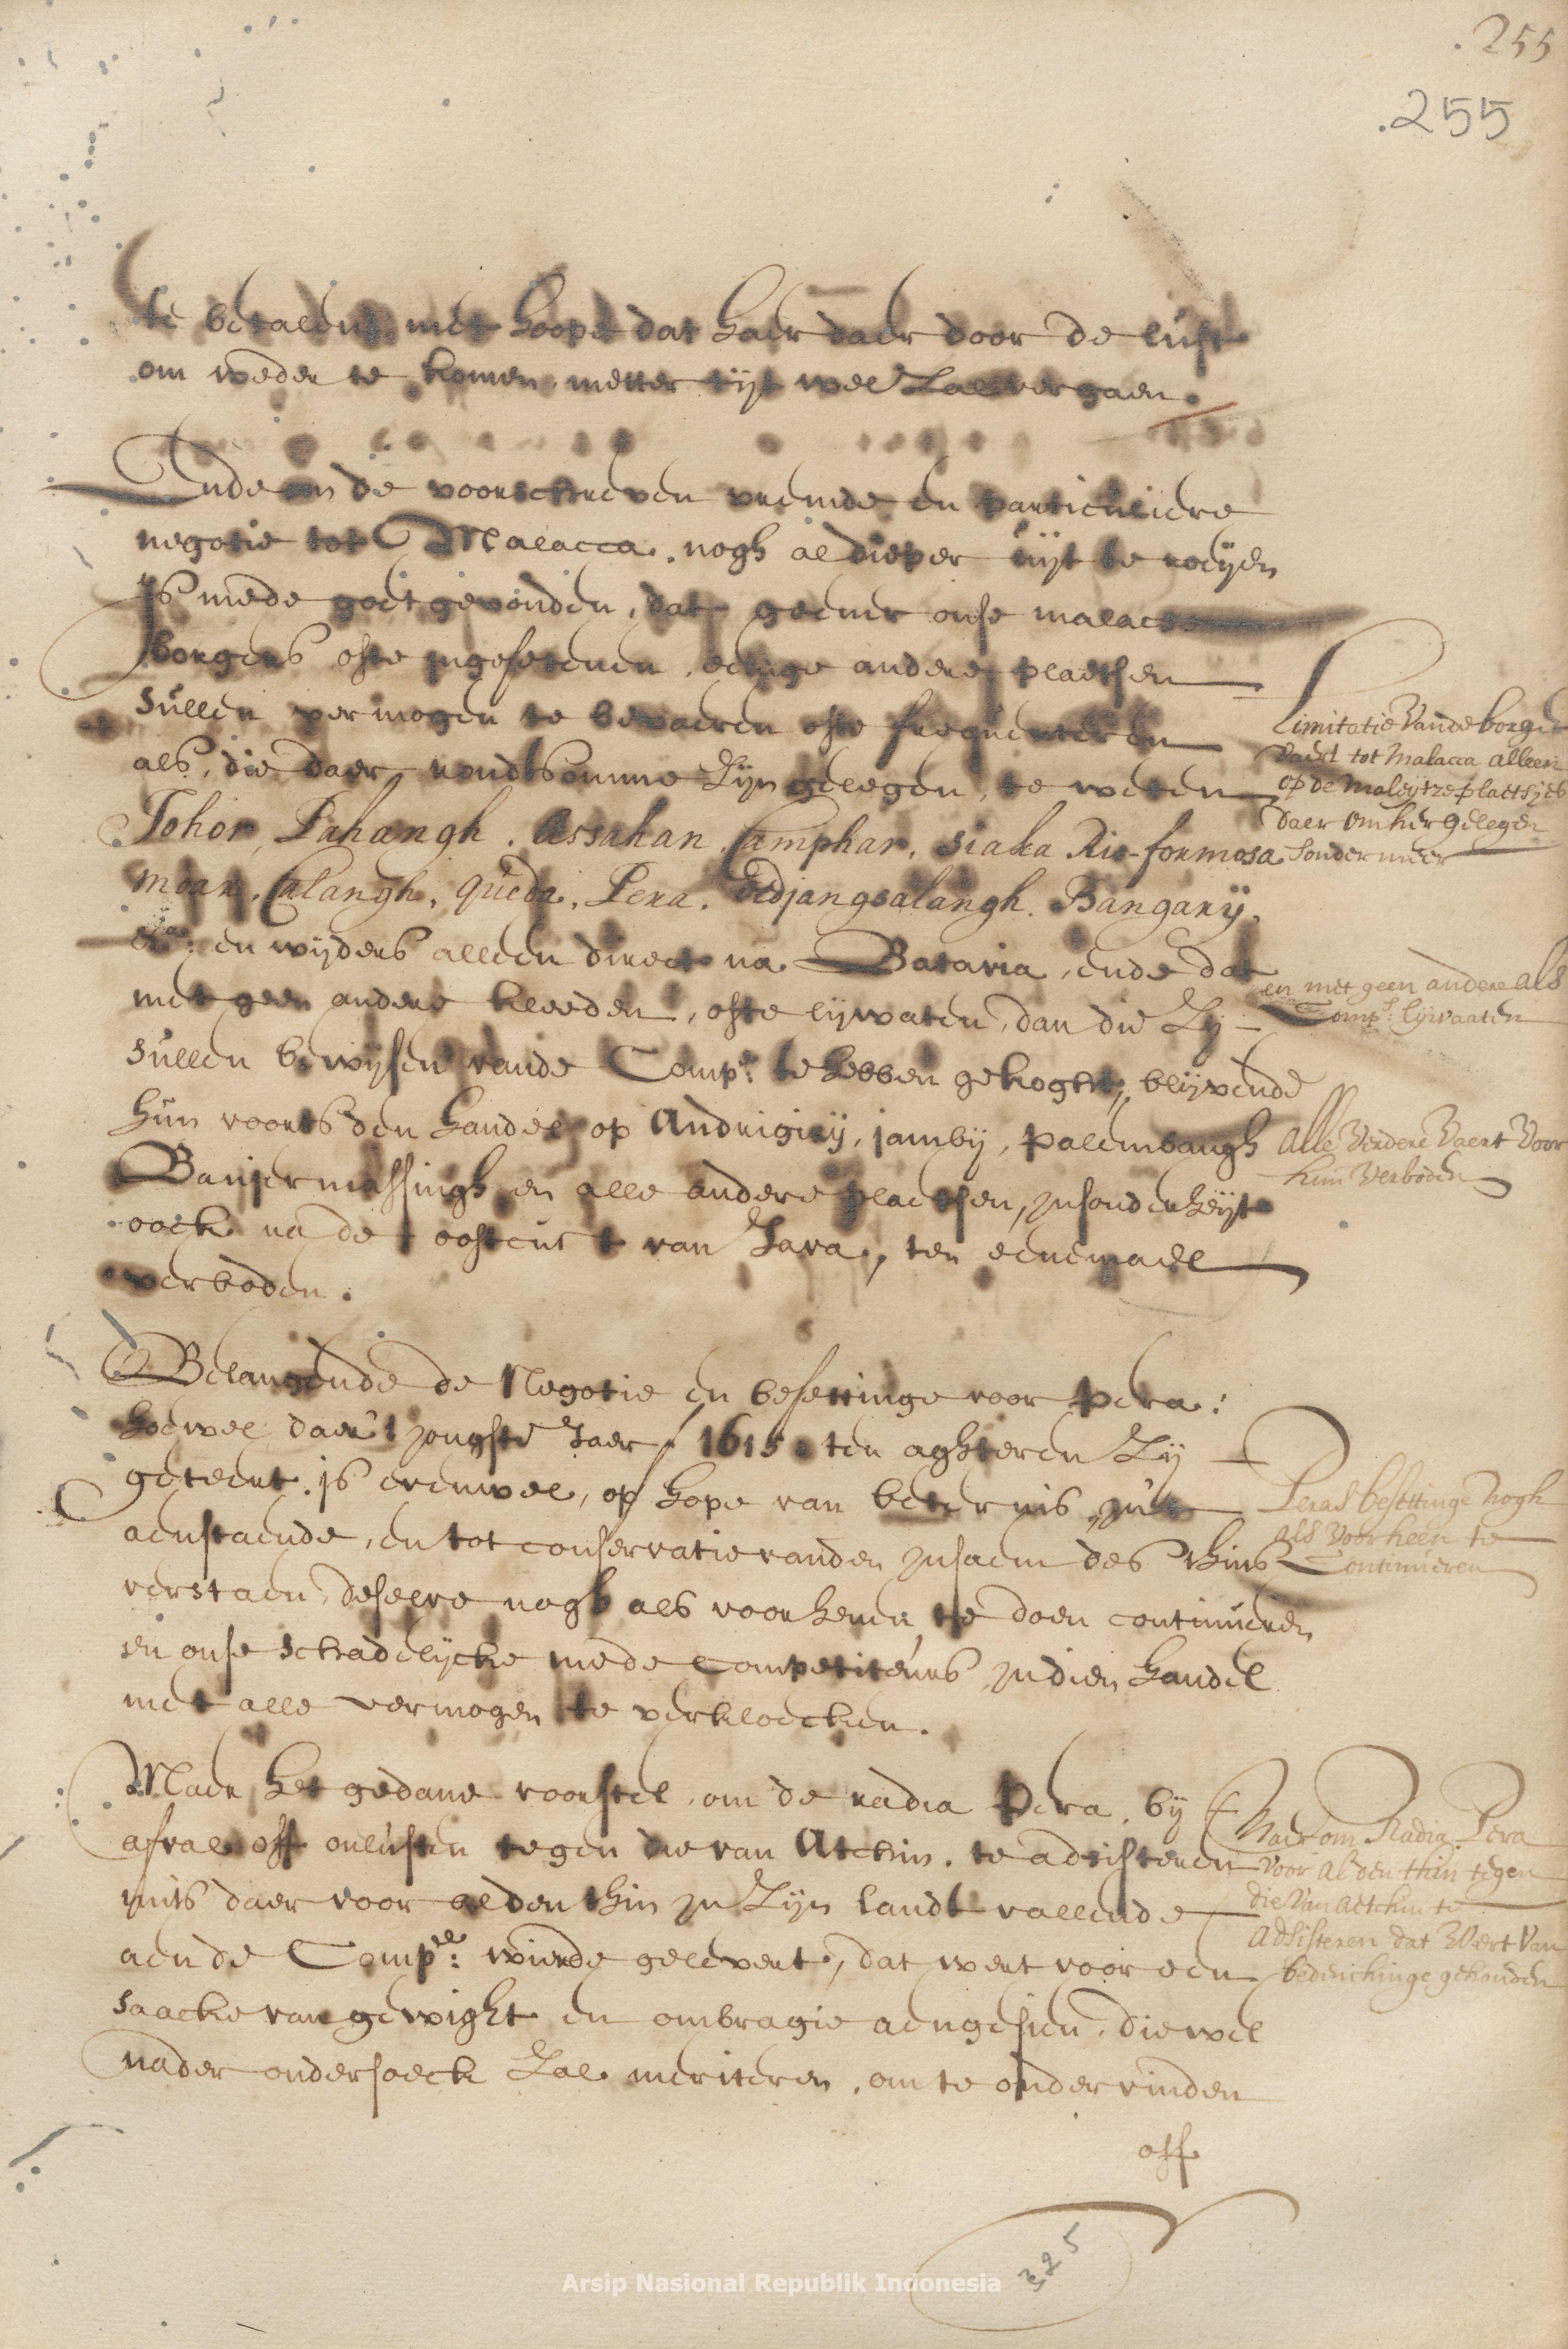 255
.255
te betalen, met hoope dat haer daer door de lust
om weder te komen metter tijt wel zal vergaen.
Ende om de voorschreven vremde en particuliere
negotie tot Malacca, nogh al dieper uijt te roeijen
Is mede goet gevonden, dat geener onse malacse
borgers ofte ingesetenen, eenige andere plaetsen
sullen vermogen te bevaeren ofte frequenteren
als, die daer rondtsomme zijn gelegen, te weten
Johor, Pahangh, Assahan, Camphar, Siaka Rio-formosa
moar, Calangh, queda, Pera, Oedjangsalangh, Bangarij,
&a: en wijders alleen direct na Batavia, ende dat
met geen andere kleeden, ofte lijwaten, dan die zij
sullen bewijsen vande Compe: te hebben gekoght, blijvende
hun voorts den handel op Andrigirij, jambij, palembangh
Banjermassingh en alle andere plaetsen, insonderheijt
oock na de oostcust van Java, ten eenemael
verboden.
Limitatie vande borger
vaert tot Malacca alleen
op de maleijtze plaetsjes
daer omher gelegen
sonder meer
en met geen andere als
Comps lijwaaten
Alle verdere vaert voor
hun verboden
Belangende de Negotie en besettinge voor Pera:
hoewel daer 't jongste Jaer ƒ 1615 ten aghteren zij
geteert, is evenwel, op hope van beternis, int
aenstaende, en tot conservatie vanden insaem des thins
verstaen, deselve nogh als voorhenen, te doen continueren
en onse schadelijcke mede Competiteurs, in dien handel
met alle vermogen te verkloecken.
Peras besettinge nogh
als voorheen te
Continueren
Maer het gedane voorstel, om de radia Pera, bij
afval off onlusten tegen die van Atchin, te adsisteren
mits daer voor al den thin in zijn landt vallende
aen de Compe: wierde gelevert, dat wert voor een
saacke van gewight en ombragie aengesien, die wel
nader ondersoeck zal meriteren, om te ondervinden
Maer om Radia Pera
voor al den thin tegen
die van Aetchin te
Adsisteren dat Wert van
bedenckinge gehouden
off
325
Arsip Nasional Republik Indonesia